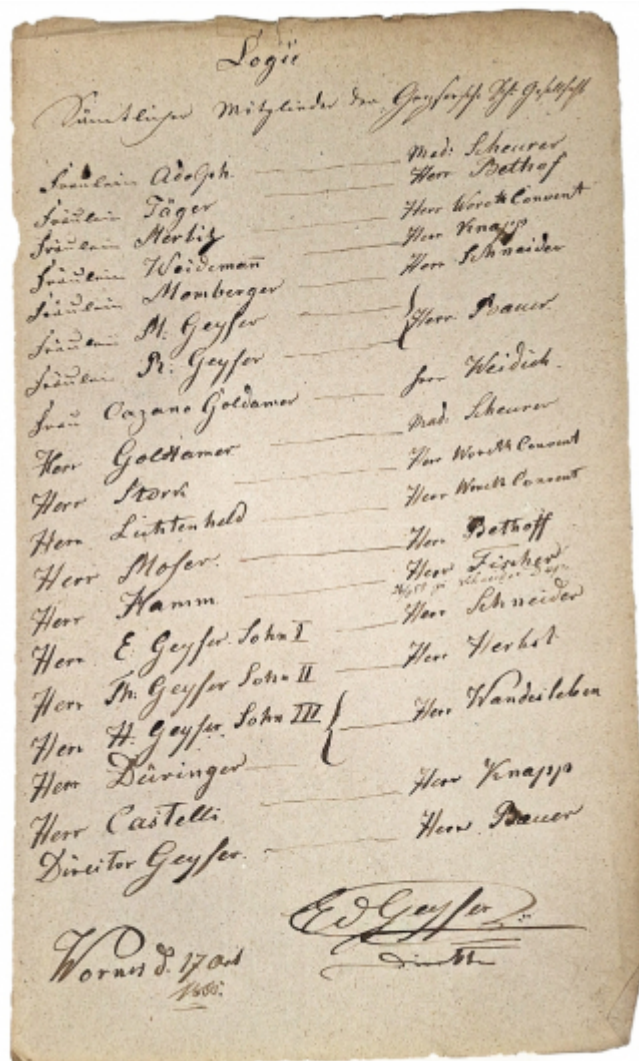 Logii
Sämtlicher Mitglieder der Geysersche Gesellschaft
Fräulein Adolph. Mad: Scheurer
Fräulein Jäger Herr Bethof
Fräulein Herbig Herr Worck Convent
Fräulein Weidemann̄ Herr Knapp
Fräulein Momberger Herr Schneider
Fräulein M: Geyser Herr. Bauer.
Fräulein R: Geyser
Frau Cazano Goldamer Herr Weidich.
Herr Goldtamer Mad: Scheurer
Herr Stork Herr Worckk Convent
Herr Lichtenheld Herr Worckk Convent
Herr Moser. Herr Bethoff
Herr Hamm Herr Fischer
Herr E. Geyser Sohn I Herr Schneider
Herr Th: Geyser Sohn II Herr Herbst
Herr H. Geyser Sohn III Herr Wandesleben
Herr Düringer
Herr Castelli Herr Knapp
Director Geyser. Herr Bauer
Ed Geyser
Director
Worms d. 17 Oct